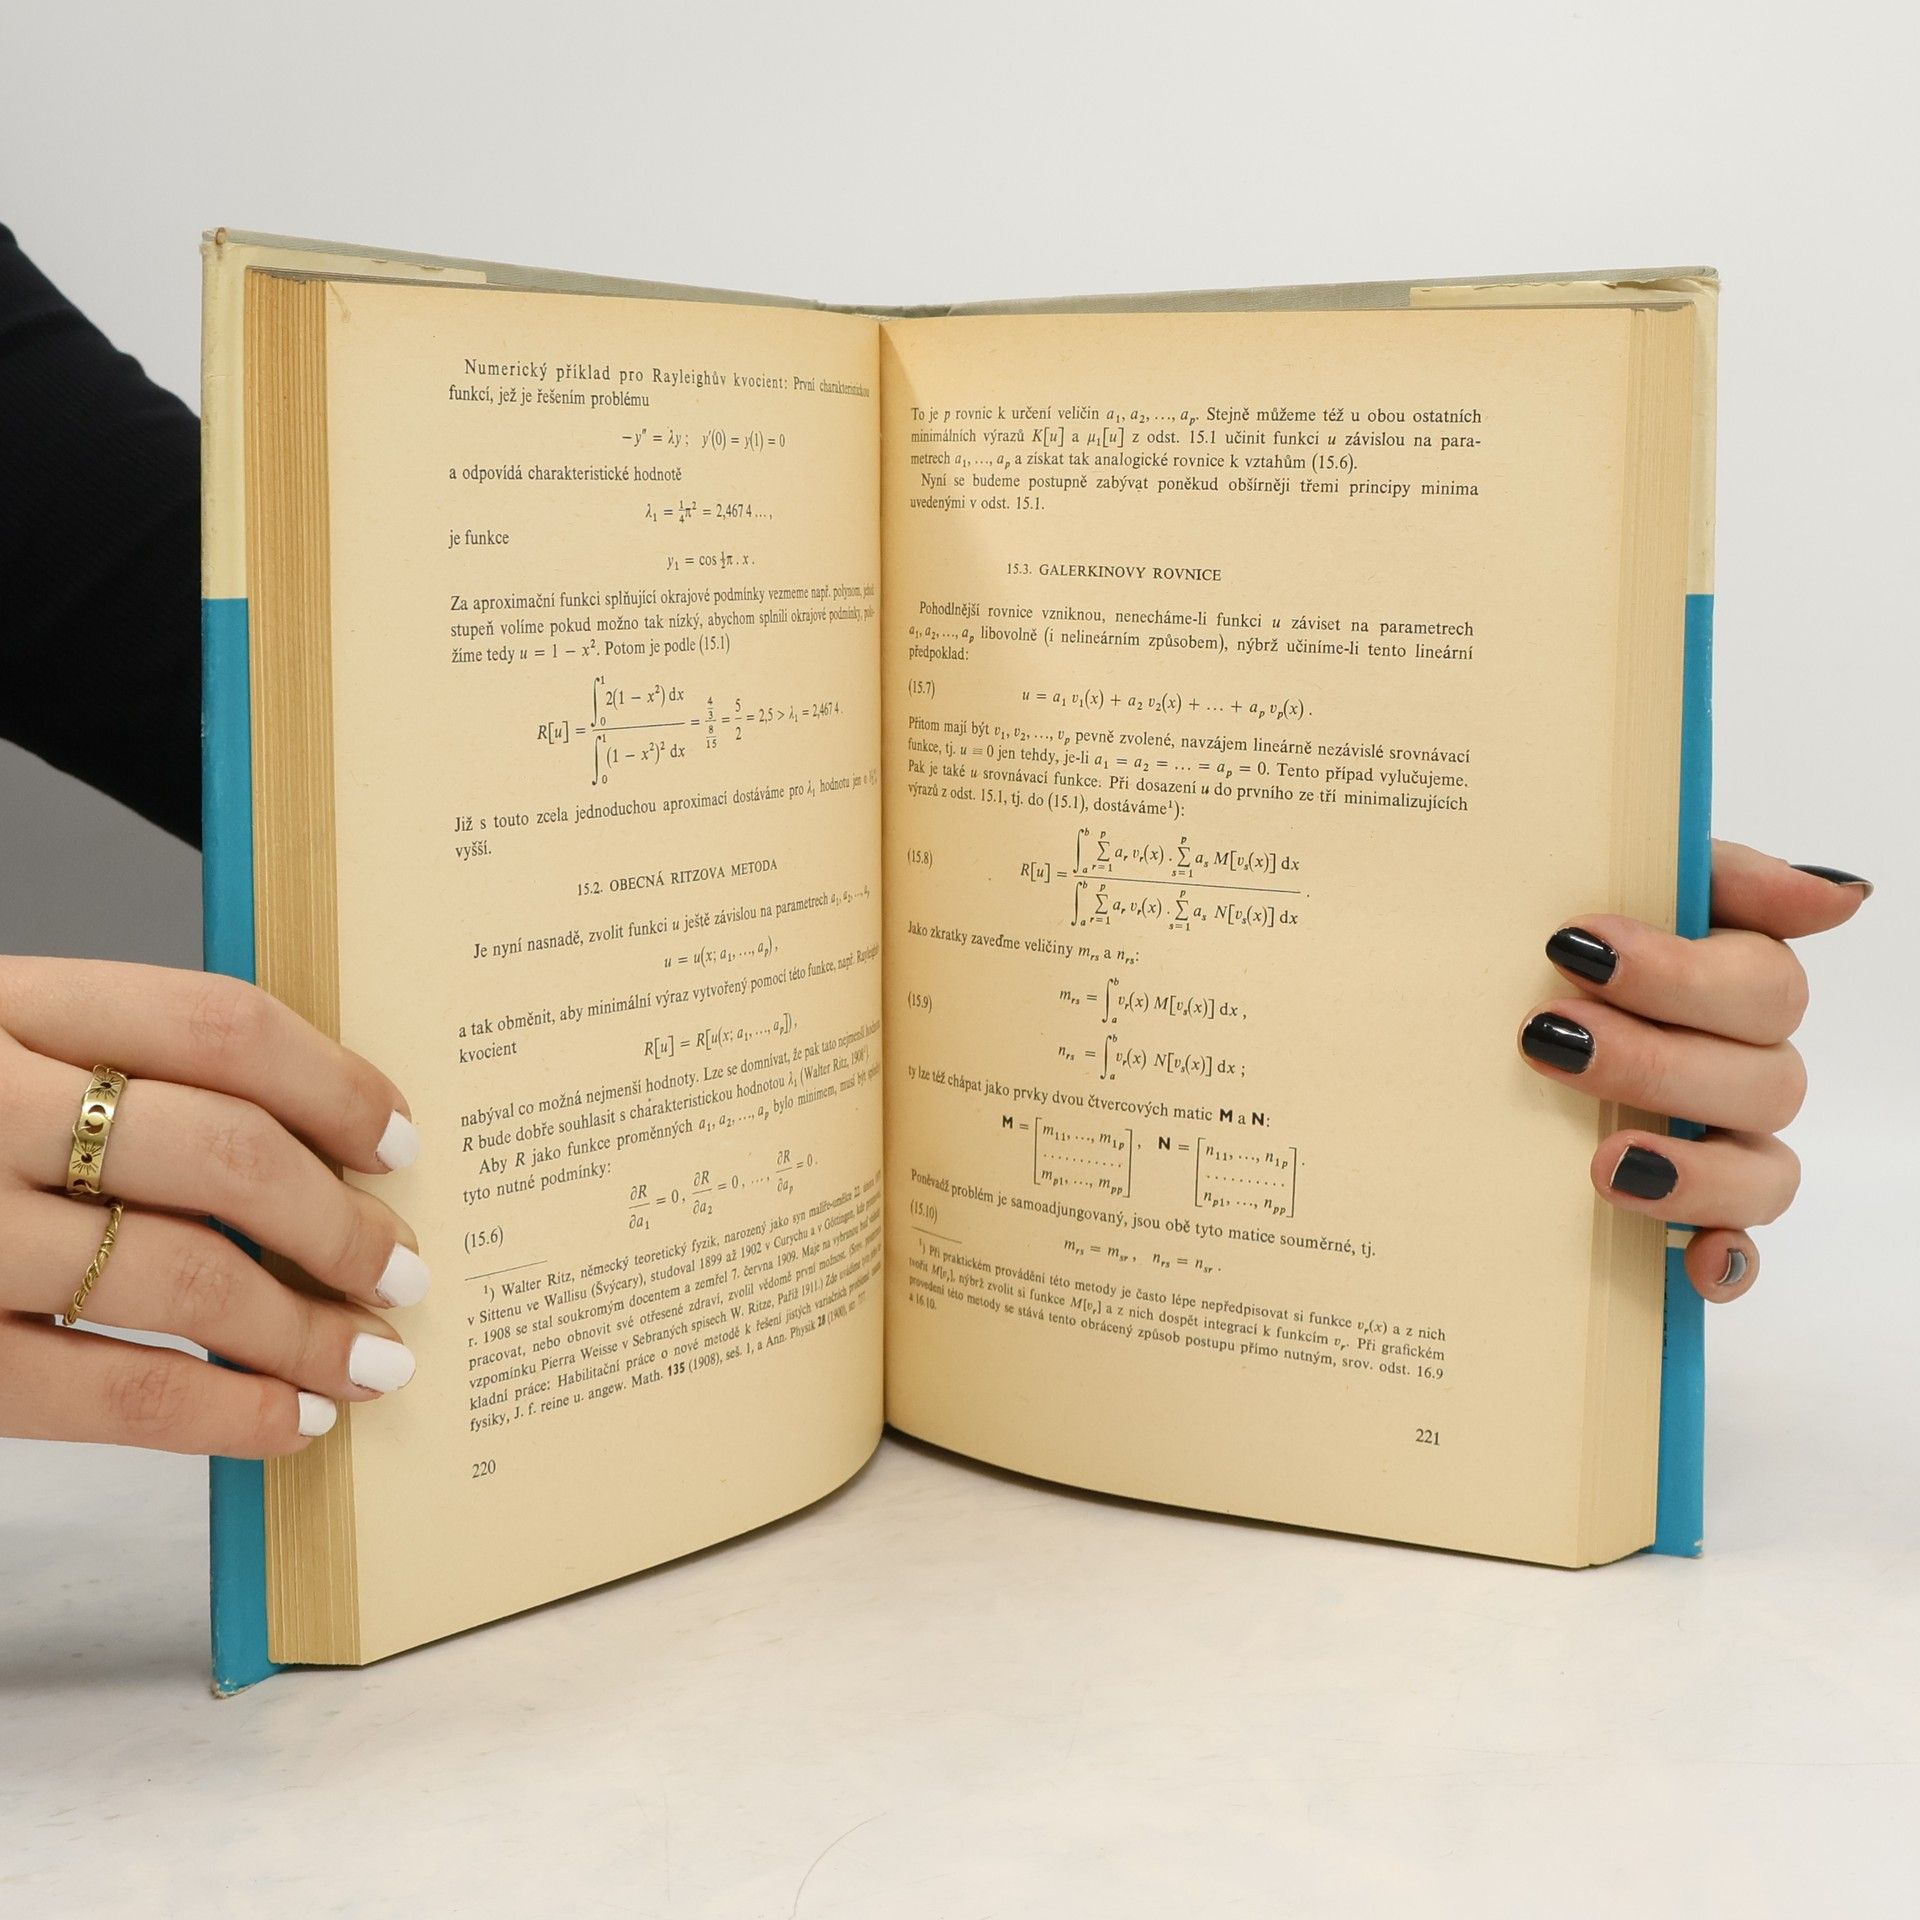 Numerický příklad pro Rayleighův kvocient: První charakteristickou
funkcí, jež je řešením problému
−y″ = λy ; y′(0) = y(1) = 0
a odpovídá charakteristické hodnotě
λ₁ = ¼π² = 2,4674 ... ,
je funkce
y₁ = cos ½π . x .
Za aproximační funkci splňující okrajové podmínky vezmeme např. polynom, jehož
stupeň volíme pokud možno tak nízký, abychom splnili okrajové podmínky, polo-
žíme tedy u = 1 − x². Potom je podle (15.1)
R[u] = ∫₀¹ 2(1 − x²) dx / ∫₀¹ (1 − x²)² dx = (4/3)/(8/15) = 5/2 = 2,5 > λ₁ = 2,4674 .
Již s touto zcela jednoduchou aproximací dostáváme pro λ₁ hodnotu jen o
vyšší.
15.2. OBECNÁ RITZOVA METODA
Je nyní nasnadě, zvolit funkci u ještě závislou na parametrech a₁, a₂, ..., aₚ
u = u(x; a₁, ..., aₚ) ,
a tak obměnit, aby minimální výraz vytvořený pomocí této funkce, např. Rayleighův
kvocient
R[u] = R[u(x; a₁, ..., aₚ]) ,
nabýval co možná nejmenší hodnoty. Lze se domnívat, že pak tato nejmenší hodnota
R bude dobře souhlasit s charakteristickou hodnotou λ₁ (Walter Ritz, 1908¹)
Aby R jako funkce proměnných a₁, a₂, ..., aₚ bylo minimem, musí být splněny
tyto nutné podmínky:
(15.6) ∂R/∂a₁ = 0 , ∂R/∂a₂ = 0 , ..., ∂R/∂aₚ = 0 .
¹) Walter Ritz, německý teoretický fyzik, narozený jako syn malíře-umělce 22. února
v Sittenu ve Wallisu (Švýcary), studoval 1899 až 1902 v Curychu a v Göttingen, kde
r. 1908 se stal soukromým docentem a zemřel 7. června 1909. Maje na vybranou buď
pracovat, nebo obnovit své otřesené zdraví, zvolil vědomě první možnost. (Srov.
vzpomínku Pierra Weisse v Sebraných spisech W. Ritze, Paříž 1911.) Zde uvádíme
kladní práce: Habilitační práce o nové metodě k řešení jistých variačních problémů
fysiky, J. f. reine u. angew. Math. 135 (1908), seš. 1, a Ann. Physik 28
220
To je p rovnic k určení veličin a₁, a₂, ..., aₚ. Stejně můžeme též u obou ostatních
minimálních výrazů K[u] a μ₁[u] z odst. 15.1 učinit funkci u závislou na para-
metrech a₁, ..., aₚ a získat tak analogické rovnice k vztahům (15.6).
Nyní se budeme postupně zabývat poněkud obšírněji třemi principy minima
uvedenými v odst. 15.1.
15.3. GALERKINOVY ROVNICE
Pohodlnější rovnice vzniknou, nenecháme-li funkci u záviset na parametrech
a₁, a₂, ..., aₚ libovolně (i nelineárním způsobem), nýbrž učiníme-li tento lineární
předpoklad:
(15.7) u = a₁ v₁(x) + a₂ v₂(x) + ... + aₚ vₚ(x) .
Přitom mají být v₁, v₂, ..., vₚ pevně zvolené, navzájem lineárně nezávislé srovnávací
funkce, tj. u ≡ 0 jen tehdy, je-li a₁ = a₂ = ... = aₚ = 0. Tento případ vylučujeme.
Pak je také u srovnávací funkce. Při dosazení u do prvního ze tří minimalizujících
výrazů z odst. 15.1, tj. do (15.1), dostáváme¹):
(15.8) R[u] = ∫ₐᵇ Σᵣ₌₁ᵖ aᵣ vᵣ(x) . Σₛ₌₁ᵖ aₛ M[vₛ(x)] dx / ∫ₐᵇ Σᵣ₌₁ᵖ aᵣ vᵣ(x) . Σₛ₌₁ᵖ aₛ N[vₛ(x)] dx .
Jako zkratky zaveďme veličiny mᵣₛ a nᵣₛ:
(15.9) mᵣₛ = ∫ₐᵇ vᵣ(x) M[vₛ(x)] dx ,
nᵣₛ = ∫ₐᵇ vᵣ(x) N[vₛ(x)] dx ;
ty lze též chápat jako prvky dvou čtvercových matic M a N:
M = [m₁₁, ..., m₁ₚ ........... mₚ₁, ..., mₚₚ] , N = [n₁₁, ..., n₁ₚ .......... nₚ₁, ..., nₚₚ] .
Poněvadž problém je samoadjungovaný, jsou obě tyto matice souměrné, tj.
(15.10) mᵣₛ = mₛᵣ , nᵣₛ = nₛᵣ .
¹) Při praktickém provádění této metody je často lépe nepředpisovat si funkce vᵣ(x) a z nich
tvořit M[vᵣ], nýbrž zvolit si funkce M[vᵣ] a z nich dospět integrací k funkcím vᵣ. Při grafickém
provedení této metody se stává tento obrácený způsob postupu přímo nutným, srov. odst. 16.9
a 16.10.
221